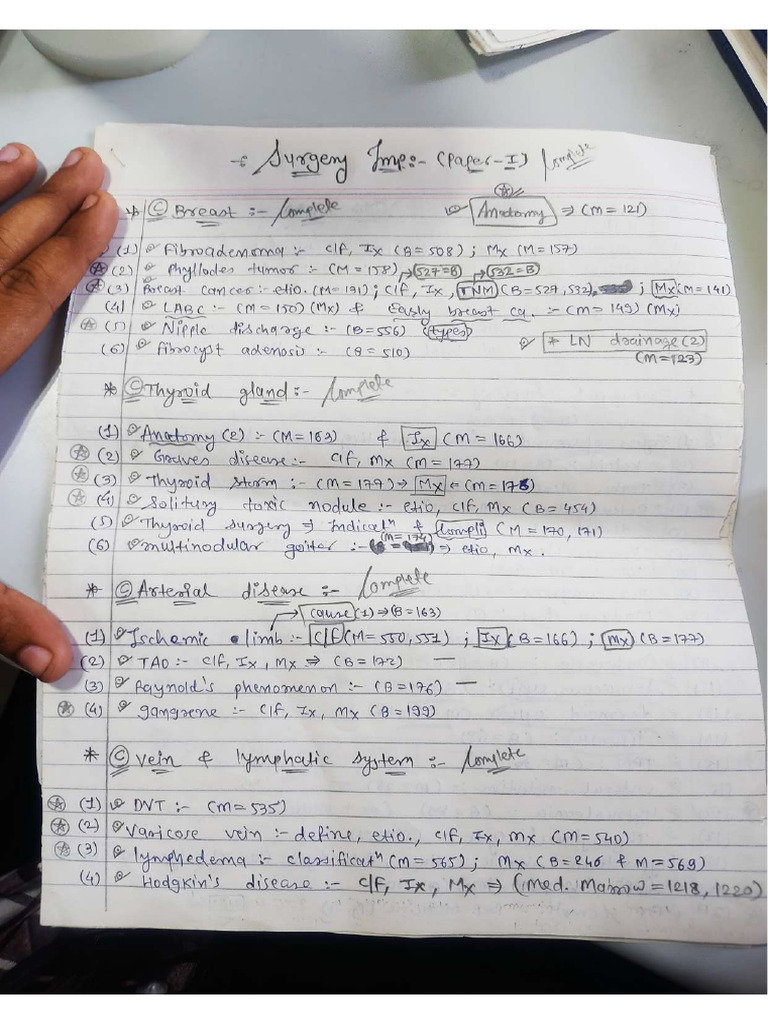 -: Surgery Imp:- (Paper-I) Complete
* © Breast :- Complete Anatomy ⇒ (M=121)
(1) Fibroadenoma :- C/f, Ix (B=508) ; Mx (M=157)
(2) Phyllodes tumor :- (M=158) → 527=B → 532=B
(3) Breast cancer :- etio. (M=131) ; C/f, Ix, TNM (B=527, 532), ; Mx (M=141)
(4) LABC :- (M=150) (Mx) & Early breast ca. :- (M=149) (Mx)
(5) Nipple discharge :- (B=556) (types)
(6) fibrocyst adenosis :- (B=510) * LN drainage (2)
(M=123)
* © Thyroid gland :- Complete
(1) Anatomy (2) :- (M=163) & Ix (M=166)
(2) Graves disease :- C/f, Mx (M=177)
(3) Thyroid storm :- (M=179) → Mx ← (M=178)
(4) Solitury toxic nodule :- etio, C/f, Mx (B=454)
(5) Thyroid surgery ⇒ Indicatⁿ & Compli (M=170, 171)
(6) multinodular goiter :- (M=174) ⇒ etio, Mx.
* © Arterial disease :- Complete
→ cause (1) ⇒ (B=163)
(1) Ischemic limb :- C/f (M=550, 551) ; Ix (B=166) ; Mx (B=177)
(2) TAO :- C/f, Ix, Mx ⇒ (B=172) —
(3) Raynold's phenomenon :- (B=176) —
(4) gangrene :- C/f, Ix, Mx (B=199)
* © Vein & lymphatic system :- Complete
(1) DVT :- (M=535)
(2) Varicose vein :- define, etio., C/f, Ix, Mx (M=540)
(3) lymphedema :- classificatⁿ (M=565) ; Mx (B=246 & M=569)
(4) Hodgkin's disease :- C/f, Ix, Mx ⇒ (Med. Marrow = 1218, 1220)